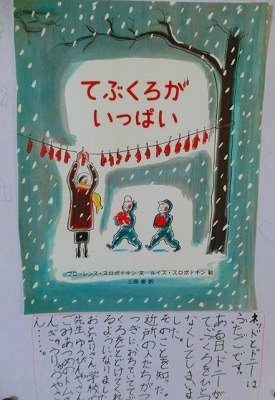 てぶくろが
いっぱい
フローレンス・スロボドキン 文・ルイス・スロボドキン 絵
三原 泉 訳
ネッドとドニーは
ふたごです。
ある日、ドニーが
てぶくろをひとつ
なくしてしまいま
した。
そのことを知った
近所の人たちがつ
ぎつぎにおちていたてぶ
くろをとどけてくれ
るようになりました。
おとなりさん、学校の
先生、ゆうびんやさん